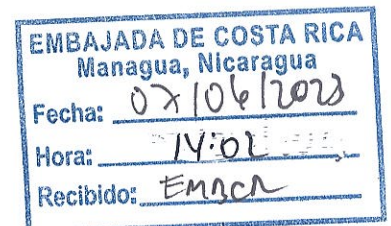 EMBAJADA DE COSTA RICA
Managua, Nicaragua
Fecha: 07/06/2023
Hora: 14:02
Recibido: EMBCR